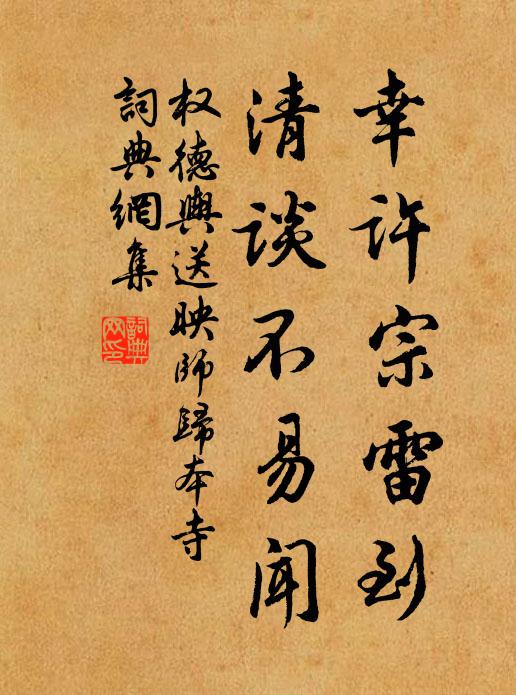 幸许宗雷到
清谈不易闻
权德舆送映师归本寺
词典网集
词典网印